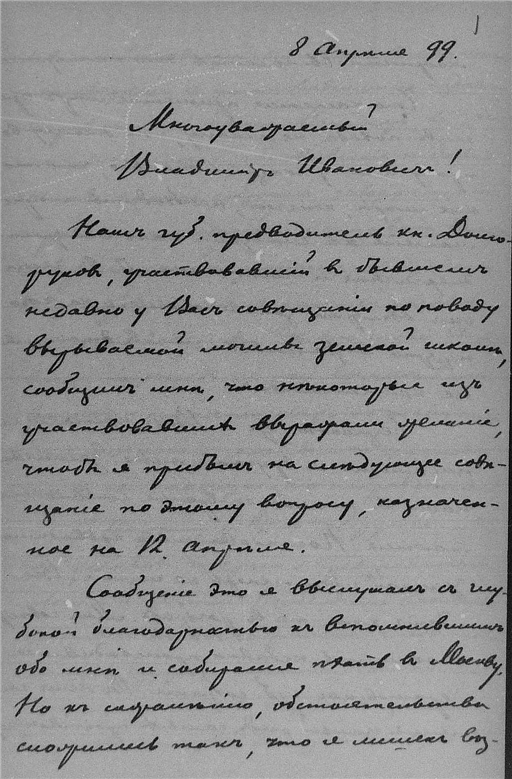 1
8 Апрѣля 99.
Многоуважаемый
Владиміръ Ивановичъ!
Нашъ губ. предводитель кн. Долго-
руковъ, участвовавшій въ бывшемъ
недавно у Васъ совѣщаніи по поводу
вырываемой могилы земской школы,
сообщилъ мнѣ, что нѣкоторые изъ
участвовавшихъ выразили желаніе,
чтобъ я прибылъ на слѣдующее совѣ-
щаніе по этому вопросу, назначен-
ное на 12 Апрѣля.
Сообщеніе это я выслушалъ съ глу-
бокой благодарностью къ вспомнившимъ
обо мнѣ и собирался ѣхать въ Москву.
Но къ сожалѣнію, обстоятельства
сложились такъ, что я лишенъ воз-